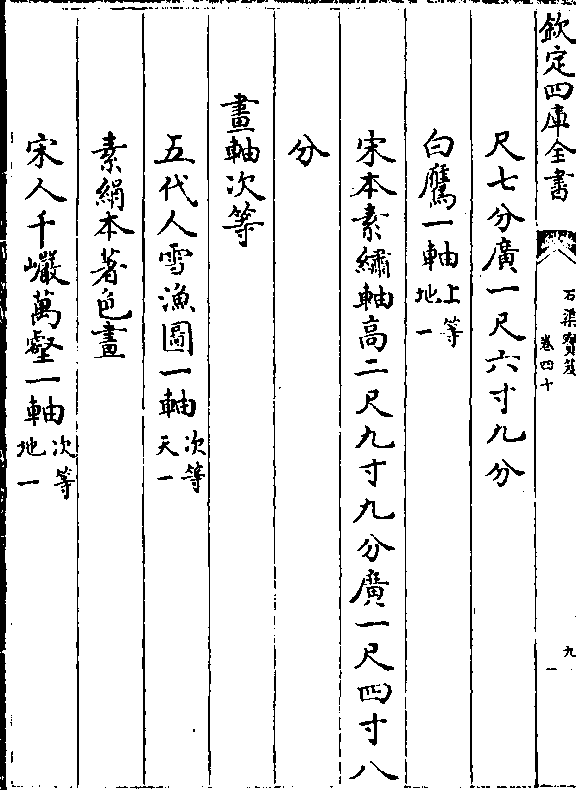 欽定四庫全書
石渠寳笈
卷四十
九
尺七分廣一尺六寸九分
白鷹一軸上等地一
宋本素繡軸高二尺九寸九分廣一尺四寸八
分
畫軸次等
五代人雪漁圖一軸次等天一
素絹本著色畫
宋人千巖萬壑一軸次等地一